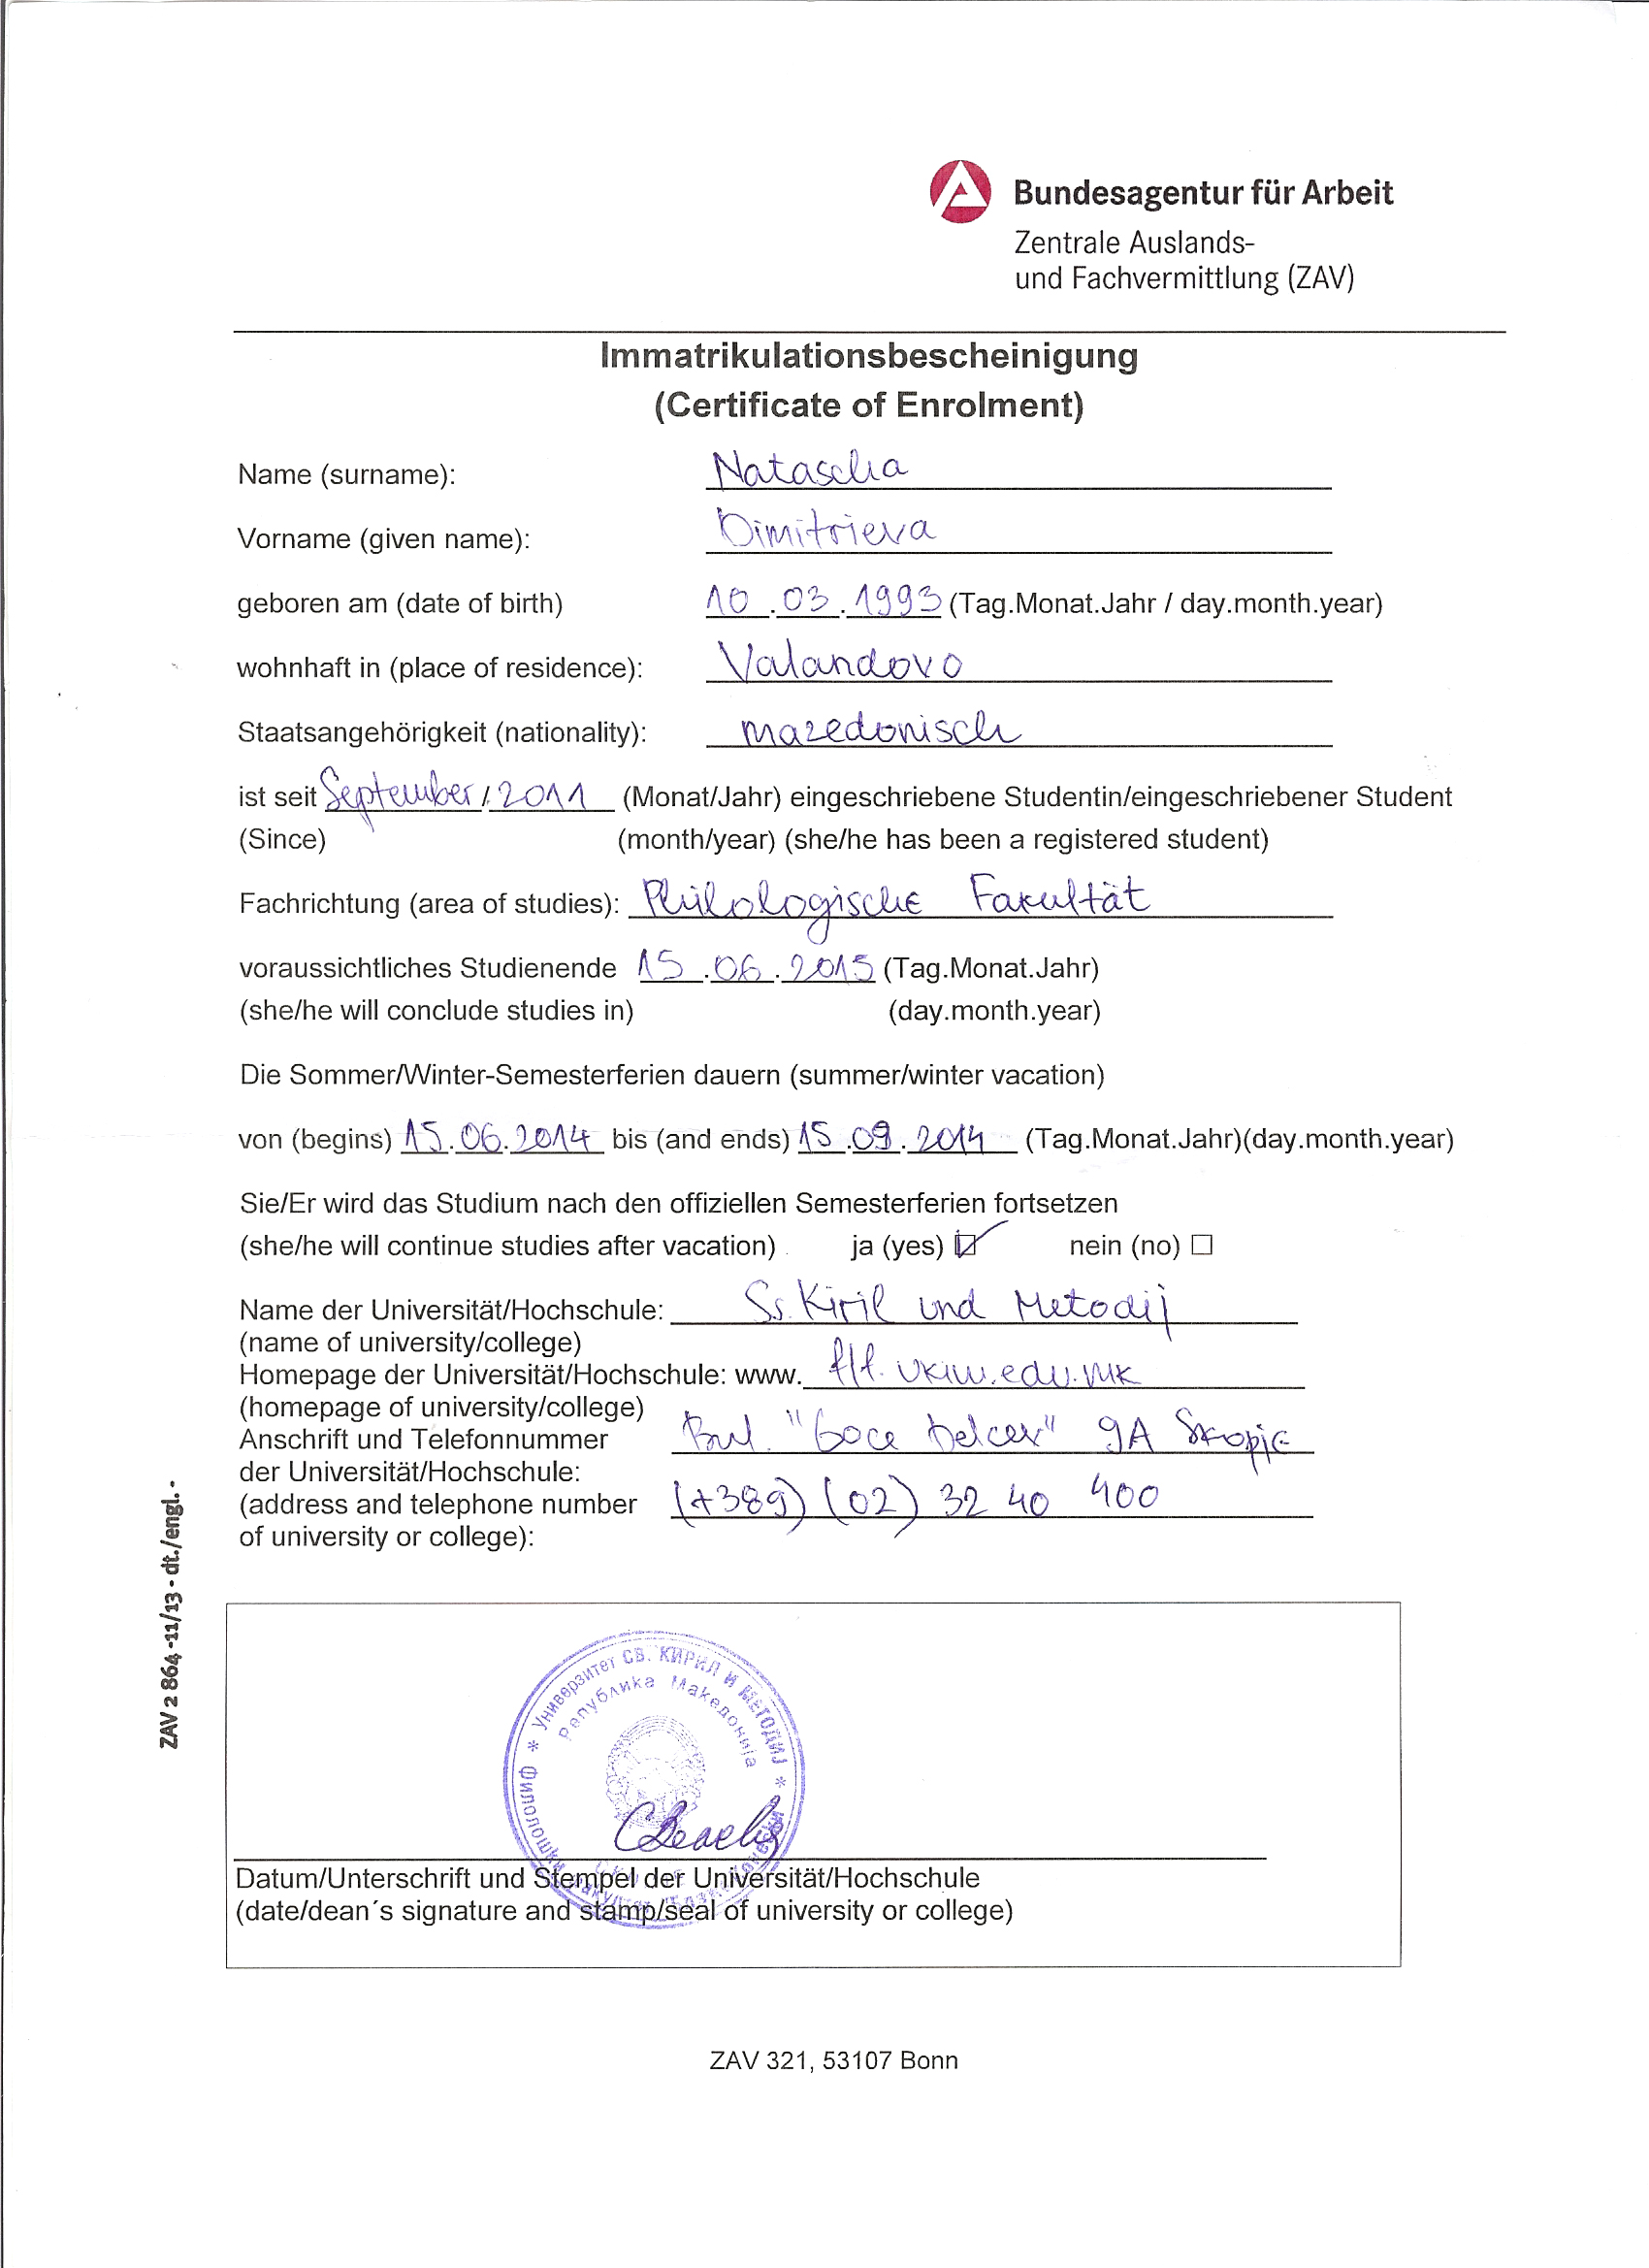 Bundesagentur für Arbeit
Zentrale Auslands-
und Fachvermittlung (ZAV)
Immatrikulationsbescheinigung
(Certificate of Enrolment)
Name (surname): Natascha
Vorname (given name): Dimitrieva
geboren am (date of birth) 10.03.1993 (Tag.Monat.Jahr / day.month.year)
wohnhaft in (place of residence): Valandovo
Staatsangehörigkeit (nationality): mazedonisch
ist seit September/2011 (Monat/Jahr) eingeschriebene Studentin/eingeschriebener Student
(Since) (month/year) (she/he has been a registered student)
Fachrichtung (area of studies): Philologische Fakultät
voraussichtliches Studienende 15.06.2015 (Tag.Monat.Jahr)
(she/he will conclude studies in) (day.month.year)
Die Sommer/Winter-Semesterferien dauern (summer/winter vacation)
von (begins) 15.06.2014 bis (and ends) 15.09.2014 (Tag.Monat.Jahr)(day.month.year)
Sie/Er wird das Studium nach den offiziellen Semesterferien fortsetzen
(she/he will continue studies after vacation) ja (yes) ☑ nein (no) ☐
Name der Universität/Hochschule: Ss. Kiril und Metodij
(name of university/college)
Homepage der Universität/Hochschule: www. flf.ukim.edu.mk
(homepage of university/college)
Anschrift und Telefonnummer Bul. "Goce Delcev" 9A Skopje
der Universität/Hochschule:
(address and telephone number (+389) (02) 32 40 400
of university or college):
ZAV 2 864 -11/13 - dt./engl. -
Универзитет СВ. КИРИЛ И МЕТОДИЈ
Република Македонија
Филолошки факултет
Datum/Unterschrift und Stempel der Universität/Hochschule
(date/dean´s signature and stamp/seal of university or college)
ZAV 321, 53107 Bonn